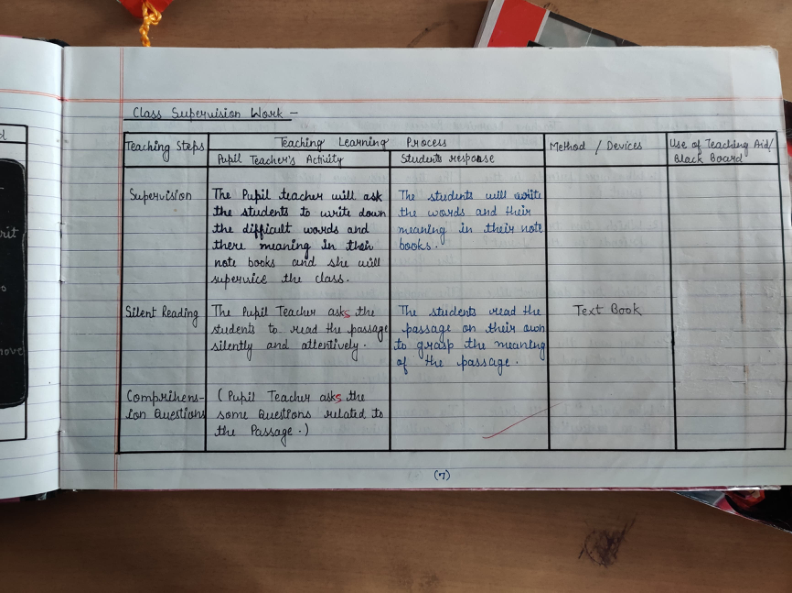 Class Supervision Work -
Teaching Steps
Teaching Learning Process
Method / Devices
Use of Teaching Aid/
Black Board
Pupil Teacher's Activity
Students response
Supervision
The Pupil teacher will ask
the students to write down
the difficult words and
there meaning in their
note books and she will
supervice the class.
The students will write
the words and their
meaning in their note
books.
Silent Reading
The Pupil Teacher asks the
students to read the passage
silently and attentively.
The students read the
passage on their own
to grasp the meaning
of the passage.
Text Book
Comprihens-
ion Questions
(Pupil Teacher asks the
some Questions related to
the Passage.)
(7)